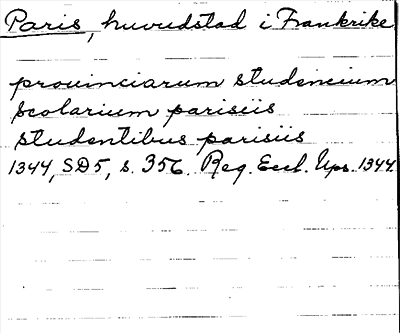 Paris, huvudstad i Frankrike
prouinciarum studencium
scolarium parisiis
studentibus parisiis
1344, SD5, s. 356. Reg. Eccl. Ups. 1344.